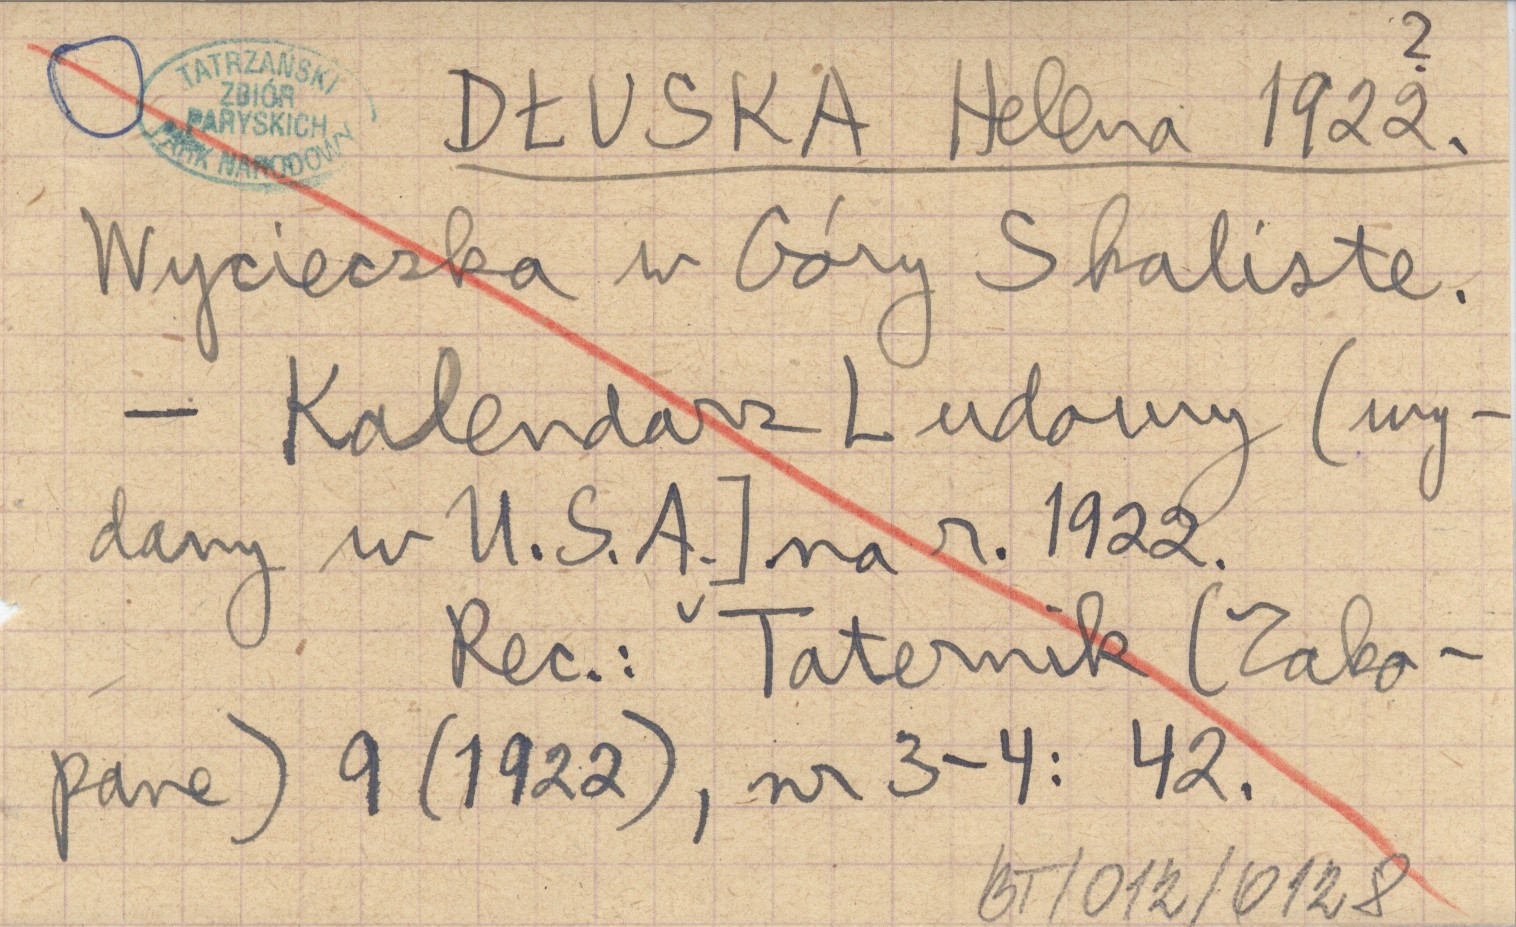 ?
TATRZAŃSKI
ZBIÓR
PARYSKICH
PARK NARODOWY
DŁUSKA Helena 1922.
Wycieczka w Góry Skaliste.
– Kalendarz Ludowy (wy-
dany w U.S.A.] na r. 1922.
Rec.: Taternik (Zako-
pane) 9 (1922), nr 3–4: 42.
BT/012/0128